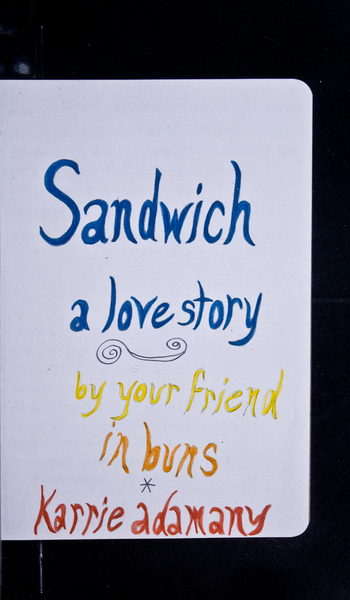 Sandwich
a love story
by your friend
in buns
*
Karrie adamany